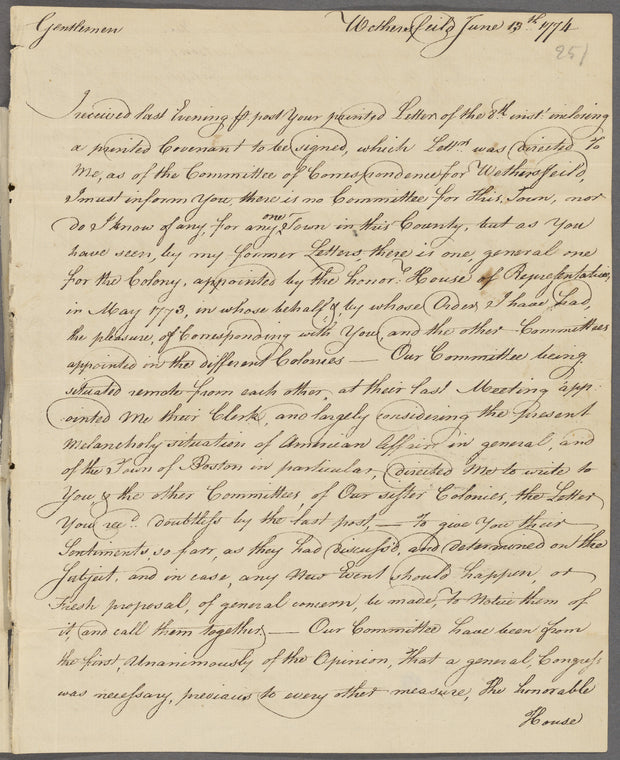 Gentlemen Wethersfeild June 13.th 1774
251
I received last Evening pr post Your printed Letter of the 8th inst. inclosing
a printed Covenant to be signed, which Lettr. was directed To
Me, as of the Committee of Correspondence for Wethersfeild,
I must inform You, there is no Committee for This Town, nor
do I know of any, for any one Town in this County, but as You
have seen, by my former Letters, there is one, general one
for the Colony, appointed by the honor.e House of Representatives,
in May 1773, in whose behalf, & by whose Order, I have had,
the pleasure, of Corresponding with You, and the other Committees
appointed in the different Colonies — Our Committee being
situated remote from each other, at their last Meeting app-
ointed Me their Clerk, and largely considering the present
Melancholy situation of American Affairs in general, and
of the Town of Boston in particular, directed Me to write to
You, & the other Committees, of Our sister Colonies, the Letter
You recd. doubtless by the last post, — To give You their
Sentiments, so farr, as they had discuss'd, and determined on the
Subject, and in case, any New Event should happen, or
Fresh proposal, of general concern, be made, to Notice them of
it, and call them together, — Our Committee have been from
the first, Unanimously of the Opinion, That a general, Congress
was necessary, previous to every other measure, The honorable
House